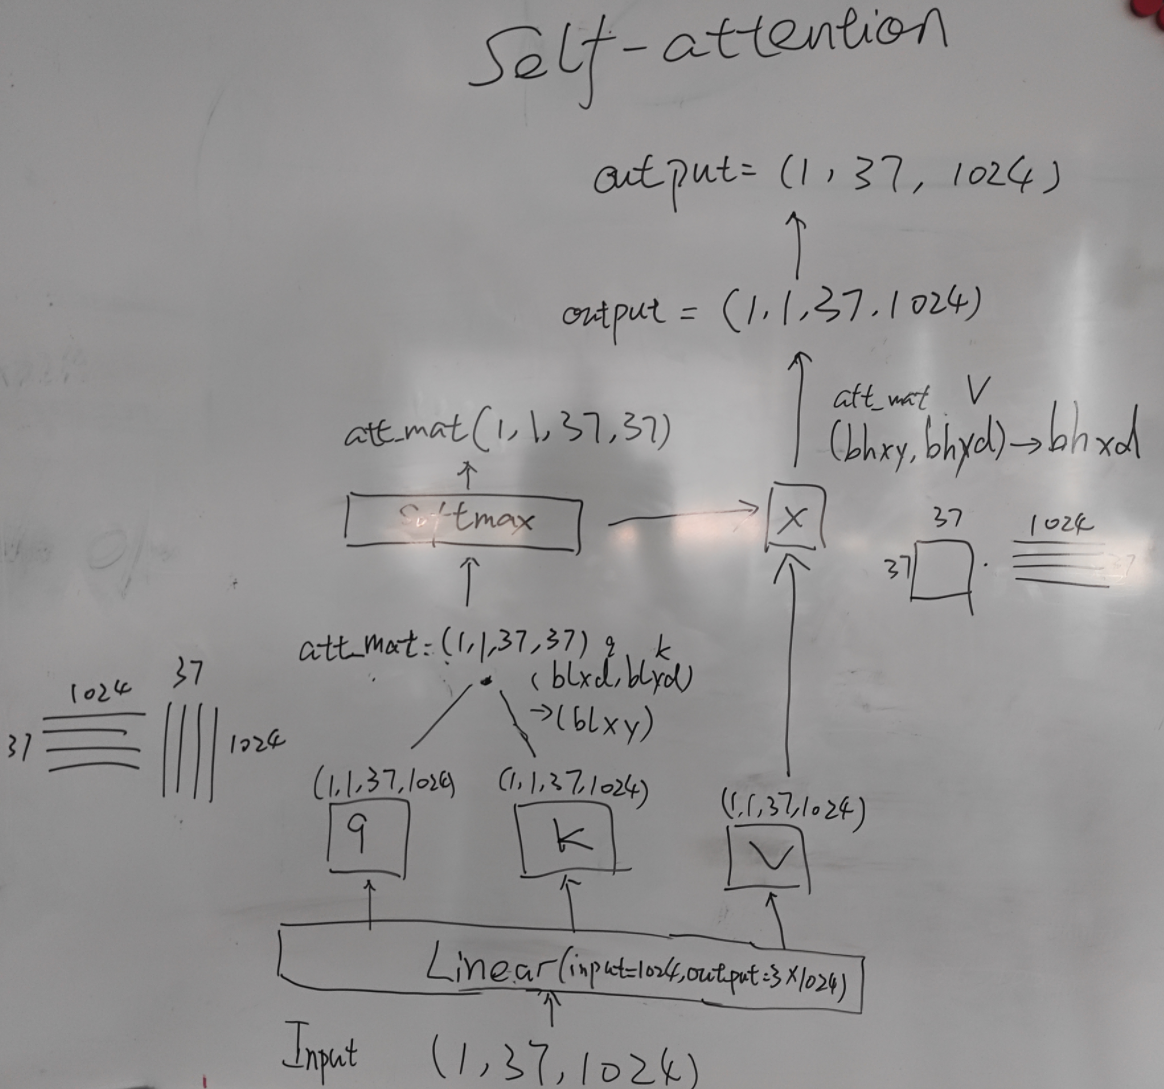 Self-attention
output= (1, 37, 1024)
output = (1,1,37,1024)
att_mat V
(bhxy, bhyd)→bhxd
att_mat(1,1,37,37)
softmax
x
37
1024
37
.
att_mat=(1,1,37,37)
q k
(blxd, blyd)
→(blxy)
1024
37
37
1024
(1,1,37,1024)
(1,1,37,1024)
(1,1,37,1024)
q
k
V
Linear(input=1024,output=3×1024)
Input (1,37,1024)